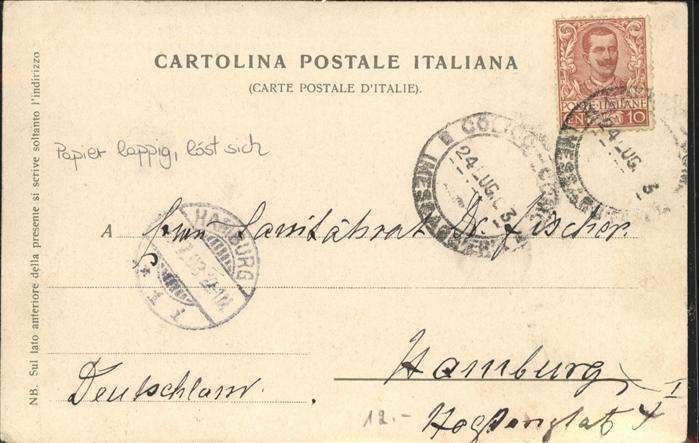 CARTOLINA POSTALE ITALIANA
(CARTE POSTALE D'ITALIE).
POSTE ITALIANE
CENT. 10
NB. Sul lato anteriore della presente si scrive soltanto l'indirizzo
Papier lappig, löst sich
COLICO
24 LUG. 3
(MESSAGGERE)
24 LUG 3
HAMBURG
* 1 i
A Herrn Sanitätsrat Dr. Fischer.
Hamburg, I
Deutschland.
4
12.-